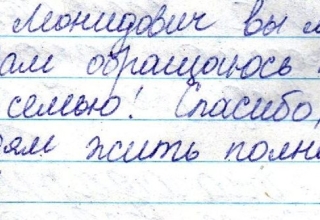 Леонидович вы
ам обращаюсь
семью! Спасибо,
ям жить полно